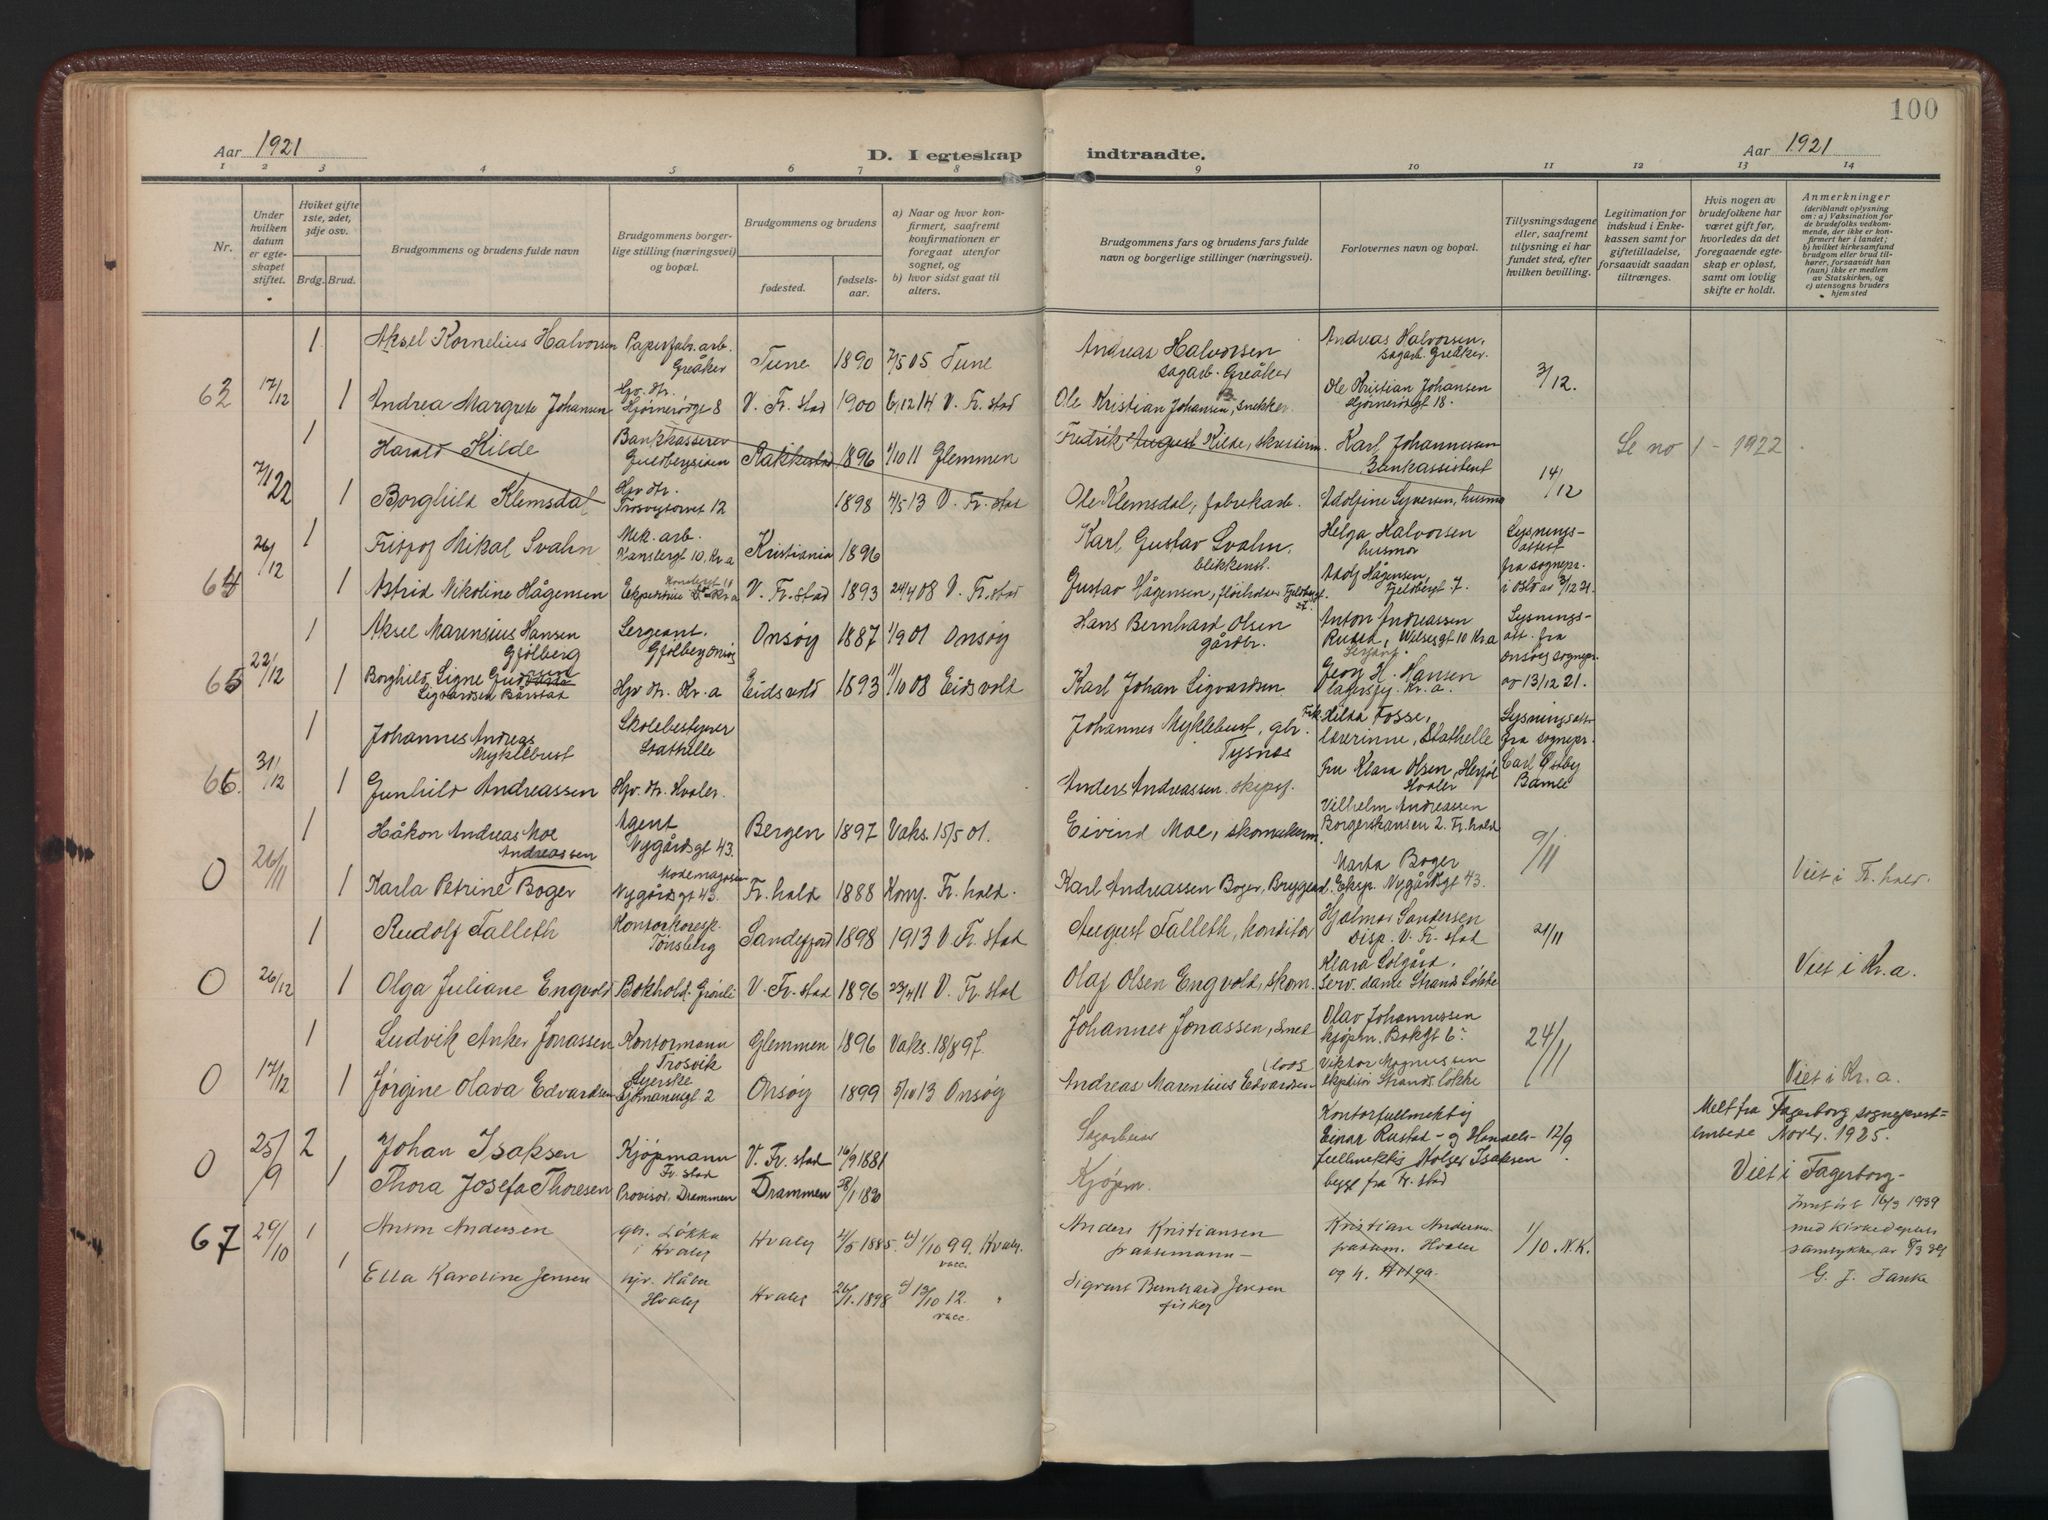 100
Aar 1921
D. I egteskap
indtraadte.
Aar 1921
1 2 3 4 5 6 7 8 9 10 11 12 13 14
Nr.
Under hvilken datum er egteskapet stiftet.
Hviket gifte 1ste, 2det, 3dje osv.
Brdg. Brud.
Brudgommens og brudens fulde navn
Brudgommens borgerlige stilling (næringsvei) og bopæl.
Brudgommens og brudens
fødested.
fødselsaar.
a) Naar og hvor konfirmert, saafremt konfirmationen er foregaat utenfor sognet, og
b) hvor sidst gaat til alters.
Brudgommens fars og brudens fars fulde navn og borgerlige stillinger (næringsvei).
Forlovernes navn og bopæl.
Tillysningsdagene eller, saafremt tillysning ei har fundet sted, efter hvilken bevilling.
Legitimation for indskud i Enkekassen samt for giftetilladelse, forsaavidt saadan tiltrænges.
Hvis nogen av brudefolkene har været gift før, hvorledes da det foregaaende egteskap er opløst, samt om lovlig skifte er holdt.
Anmerkninger
(deriblandt oplysning om: a) Vaksination for de brudefolks vedkommende, der ikke er konfirmert her i landet; b) hvilket kirkesamfund brudgom eller brud tilhører, forsaavidt han (hun) ikke er medlem av Statskirken, og c) utensogns bruders hjemsted
1 Aksel Kornelius Halvorsen Papirfabr.arb. Greåker Tune 1890 7/5 05 Tune Andreas Halvorsen sagarb. Greåker Andreas Halvorsen, sagarb. Greåker. 3/12.
62 17/12 1 Andrea Margrete Johansen Hjv. dtr. 8 V. Fr.stad 1900 6/12 14 V. Fr.stad Ole Kristian Johansen, snekker. Ole Kristian Johansen 18.
1 Harald Kilde Bankkasserer Rakkestad 1896 1/10 11 Glemmen Fredrik August Kilde, Karl Johannesen Bankassistent Se no 1 - 1922.
7/1 22 1 Borghild Klemsdal Hjv. dtr. Trosvigtorvet 12 1898 4/5 13 V. Fr.stad Ole Klemsdal, fabrikarb. Adolfine Syversen, husmo 14/12
26/12 1 Fritjof Mikal Svahn Mek. arb. 10, Kr.a Kristiania 1896 Karl Gustav Svahn, blikkensl. Helga Halvorsen husmor Lysnings-attest
64 1 Astrid Nikoline Hågensen Kr.a V. Fr.stad 1893 24/4 08 V. Fr.stad Gustav Hågensen, Adolf Hågensen, Fjeldbergt 7. fra sognepr. i Oslo av 3/12 21.
1 Aksel Marensius Hansen Gjølberg Sergeant, Gjølberg Onsøy Onsøy 1887 1/9 01 Onsøy Hans Bernhard Olsen gårdbr. Anton Andreassen Rustad, 10 Kr.a Lysnings-att. fra
65 22/12 1 Borghild Signe Sigvardsen Bårstad Hjv. dtr. Kr.a Eidsvold 1893 11/10 08 Eidsvold Karl Johan Sigvardsen Georg H. Hansen Kr.a. Onsøy sognepr. av 13/12 21.
1 Johannes Andreas Myklebust Skolebestyrer Stathelle Johannes Myklebust, gbr. Tysnes Frk. Hilda Fosse, lærerinne, Stathelle Lysningsatt. fra sognepr.
66. 31/12 1 Gunhild Andreassen Hjv. dtr. Hvaler. Anders Andreassen, skipsf. Fru Klara Olsen, Herføl Hvaler Carl Østby Bamle
1 Håkon Andreas Moe Andreassen Agent Nygårdsgt 43. Bergen 1897 Vaks. 15/5 01. Eivind Moe, skomakerm. Vilhelm Andreassen Borgerskansen 2. Fr.hald 9/11
0 26/11 1 Karla Petrine Boger Nygårdsgt 43. Fr.hald 1888 Konf. Fr.hald. Karl Andreassen Boger, Marta Boger Eksp. Nygårdsgt 43. Viet i Fr.hald.
1 Rudolf Falleth Kontorkoresp. Tønsberg Sandefjord 1898 1913 V. Fr.stad August Falleth, konditor Hjalmar Sandersen Disp. V. Fr.stad 21/11
0 26/12 1 Olga Juliane Engvold Bokhold. Grønli V. Fr.stad 1896 23/4 11 V. Fr.stad Olaf Olsen Engvold, skom. Klara Solgård, Serv. dame Strands Løkke Viet i Kr.a.
1 Ludvik Anker Jonassen Kontormann Trosvik Glemmen 1896 Vaks. 18/8 97. Johannes Jonassen, smed Olav Johannessen kjøpm. 24/11
0 17/12 1 Jørgine Olava Edvardsen Syerske Sjømannsgt 2 Onsøy 1899 5/10 13 Onsøy Andreas Marentius Edvardsen (loos Viktor Magnussen Strands løkke Viet i Kr.a.
25/9 2 Johan Isaksen Kjøpmann Fr.stad V. Fr.stad 16/9 1881 Sagarbeider Kontorfullmektig Einar Rustad - og Handels- 12/9 Melt fra Fagerborg sogneprest-embede Novbr. 1925.
0 1 Thora Josefa Thoresen Provisor. Drammen Drammen 28/1 1890 Kjøpm. fullmektig Holger Isaksen begge fra Fr.stad Viet i Fagerborg -
67 29/10 1 Anton Andersen gbr. Løkka i Hvaler Hvaler 1885. 1/10 99. Hvaler. vacc. Anders Kristiansen passemann - Kristian Andersen passm. Hvaler 1/10. N.K. Innført 16/3 1939 med kirkedepts samtykke av 8/3 39
1 Ella Karoline Jensen Hvaler Hvaler 26/1. 1898 13/10 12. vacc. Sigvart Bernhard Jensen fisker og h. Helga. G. J.